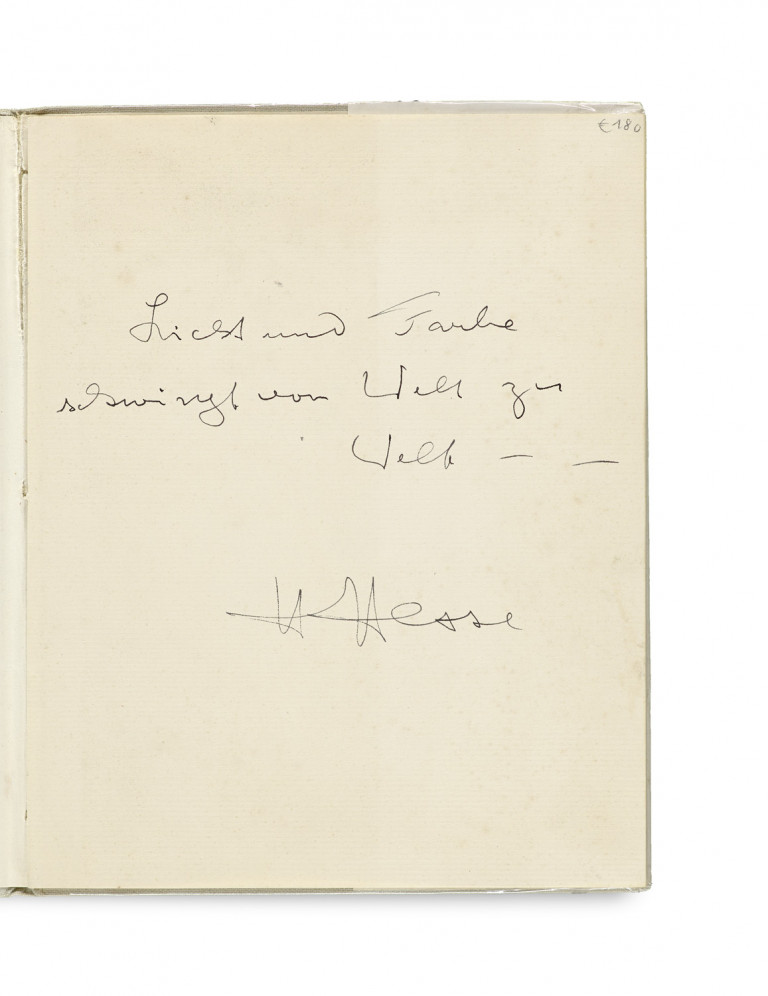 €180
Licht und Farbe
schwingt von Welt zu
Welt – –
H Hesse